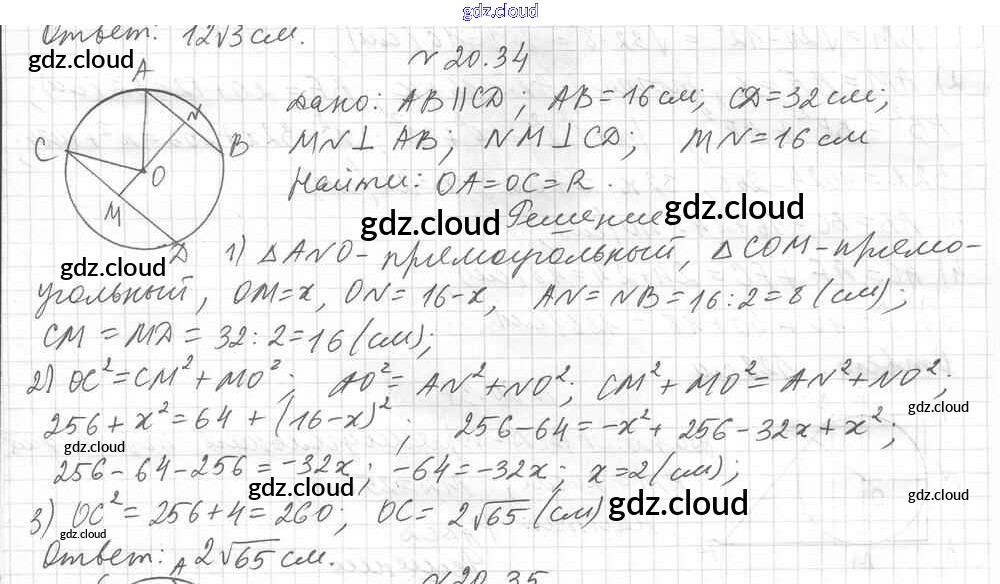 gdz.cloud
Ответ: 12√3 см.
gdz.cloud
N 20.34
A
N
C
B
O
M
D
Дано: AB||CD; AB=16см; CD=32см;
MN⊥ AB; NM⊥CD; MN=16см
Найти: OA=OC=R.
gdz.cloud
gdz.cloud
Решение
gdz.cloud
1) △ANO-прямоугольный, △COM-прямо-
угольный, OM=x, ON= 16-x, AN=NB=16:2=8(см);
CM=MD=32:2=16(см);
2) OC²=CM²+MO²; AO²=AN²+NO²; CM²+MO²=AN²+NO²;
gdz.cloud
256+x²=64+(16-x)²; 256-64=-x²+256-32x+x²;
gdz.cloud
256-64-256=-32x; -64=-32x; x=2(см);
gdz.cloud
gdz.cloud
gdz.cloud
3) OC²=256+4=260; OC=2√65(см)
gdz.cloud
Ответ: 2√65 см.
A
N20.35